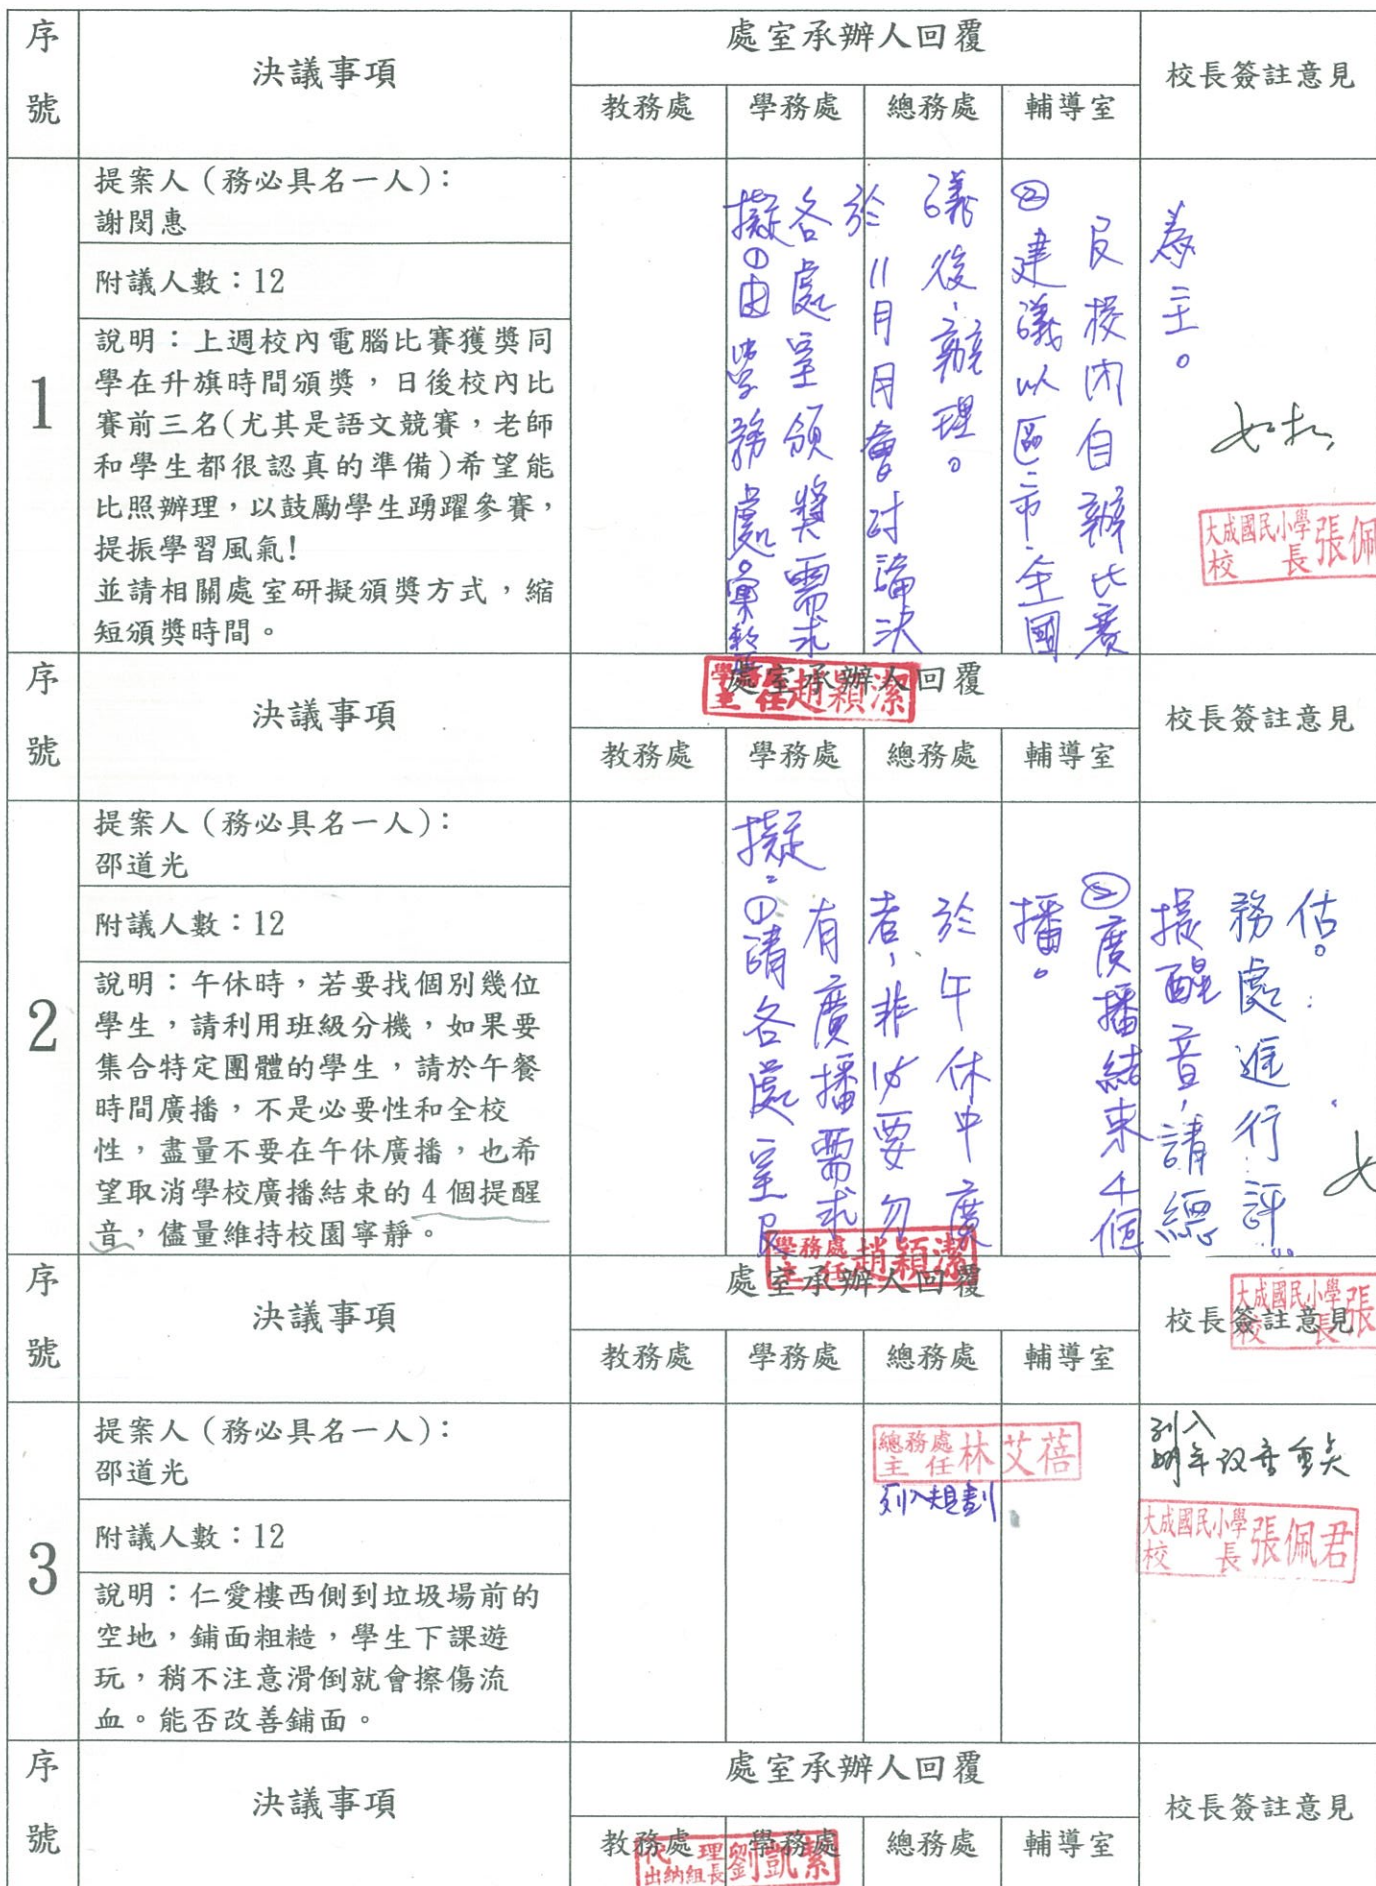 序號
決議事項
處室承辦人回覆
校長簽註意見
教務處
學務處
總務處
輔導室
1
提案人（務必具名一人）：
謝閔惠
附議人數：12
說明：上週校內電腦比賽獲獎同
學在升旗時間頒獎，日後校內比
賽前三名(尤其是語文競賽，老師
和學生都很認真的準備)希望能
比照辦理，以鼓勵學生踴躍參賽，
提振學習風氣!
並請相關處室研擬頒獎方式，縮
短頒獎時間。
擬①由學務處彙整
各處室頒獎需求
於11月月會討論決
議後，辦理。
②建議以區、市、全國
及校內自辦比賽
為主。
如擬
大成國民小學
校長 張佩
學務處
主任 趙穎潔
序號
決議事項
處室承辦人回覆
校長簽註意見
教務處
學務處
總務處
輔導室
2
提案人（務必具名一人）：
邵道光
附議人數：12
說明：午休時，若要找個別幾位
學生，請利用班級分機，如果要
集合特定團體的學生，請於午餐
時間廣播，不是必要性和全校
性，盡量不要在午休廣播，也希
望取消學校廣播結束的4個提醒
音，儘量維持校園寧靜。
擬：
①請各處室及
有廣播需求
者，非必要勿
於午休中廣
播。
②廣播結束4個
提醒音，請總
務處進行評
估。
學務處
主任 趙穎潔
大成國民小學
校長 張
序號
決議事項
處室承辦人回覆
校長簽註意見
教務處
學務處
總務處
輔導室
3
提案人（務必具名一人）：
邵道光
附議人數：12
說明：仁愛樓西側到垃圾場前的
空地，鋪面粗糙，學生下課遊
玩，稍不注意滑倒就會擦傷流
血。能否改善鋪面。
總務處
主任 林艾蓓
列入規劃
列入
明年改善重點
大成國民小學
校長 張佩君
序號
決議事項
處室承辦人回覆
校長簽註意見
教務處
學務處
總務處
輔導室
代理
出納組長 劉凱絜